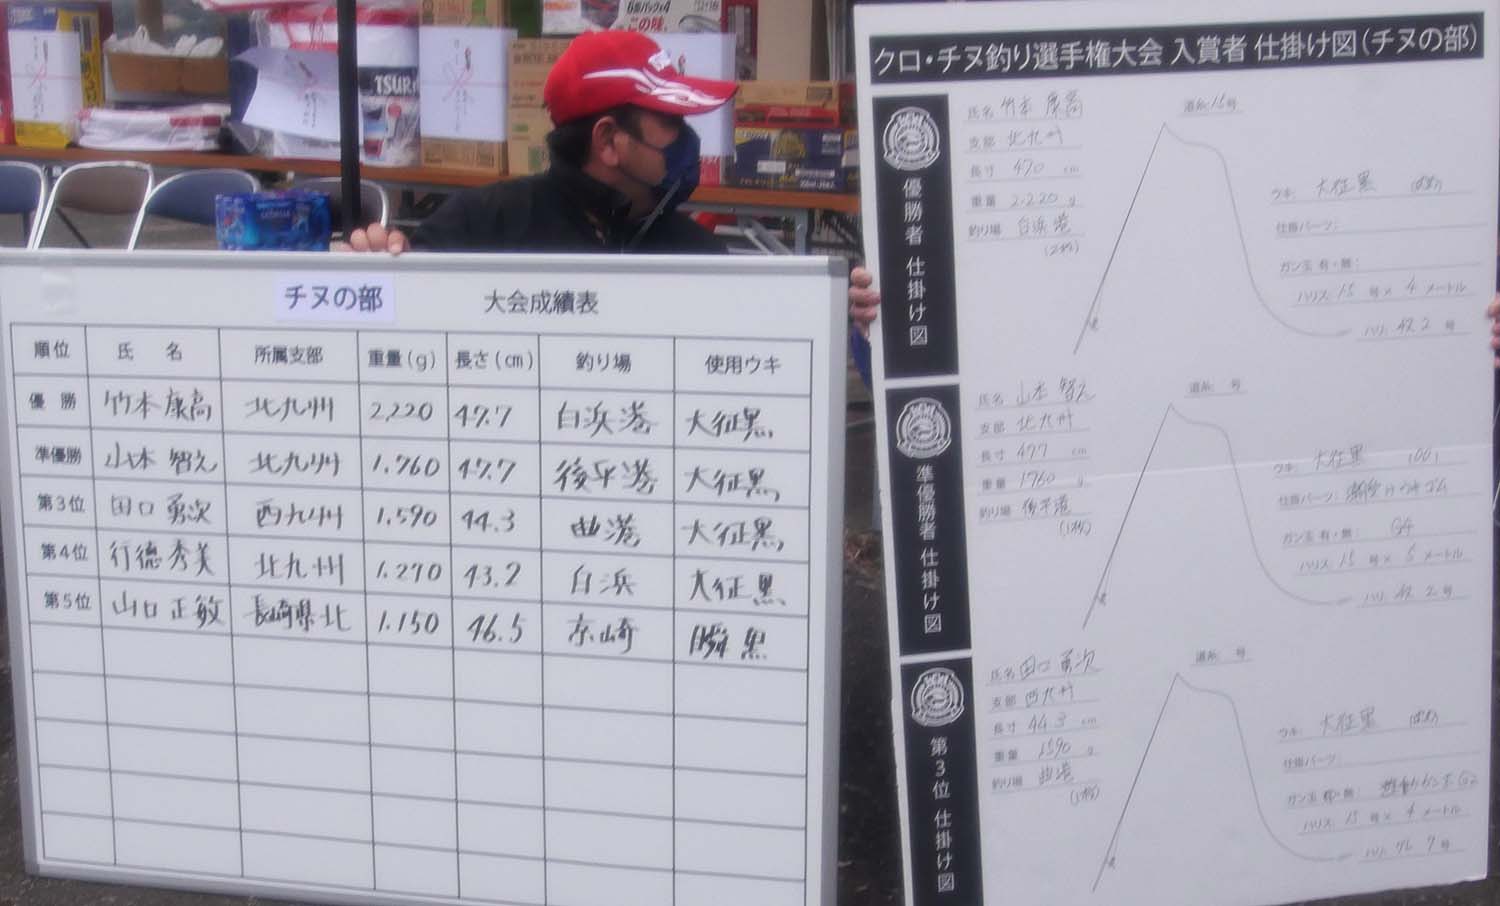 TSURA
この味。
チヌの部 大会成績表
順位 氏 名 所属支部 重量(g) 長さ(cm) 釣り場 使用ウキ
優 勝 竹本 康高 北九州 2,220 47.7 白浜港 大征黒
準優勝 山本 智之 北九州 1.760 47.7 後平港 大征黒
第3位 田口 勇次 西九州 1.590 44.3 曲港 大征黒
第4位 行徳秀美 北九州 1.270 43.2 白浜 大征黒
第5位 山口正敏 長崎県北 1.150 46.5 京崎 瞬黒
クロ・チヌ釣り選手権大会 入賞者 仕掛け図(チヌの部)
優勝者 仕掛け図
氏名 竹本 康高
支部 北九州
長寸 470 cm
重量 2.220 g
釣り場 白浜港
(2枚)
道糸 1.5号
ウキ: 大征黒
仕掛パーツ:
ガン玉 有・無:
ハリス 1.5 号× 4 メートル
ハリ 2 号
準優勝者 仕掛け図
氏名 山本 智之
支部 北九州
長寸 477 cm
重量 1760 g
釣り場 後平港
(1枚)
道糸 号
ウキ: 大征黒
仕掛パーツ: ゴム
ガン玉 有・無: G4
ハリス 1.5 号× 5 メートル
ハリ 2 号
第3位 仕掛け図
氏名 田口 勇次
支部 西九州
長寸 44.3 cm
重量 1590 g
釣り場 曲港
(1枚)
道糸 号
ウキ: 大征黒
仕掛パーツ:
ガン玉 有・無: G2
ハリス 1.5 号× 4 メートル
ハリ 号